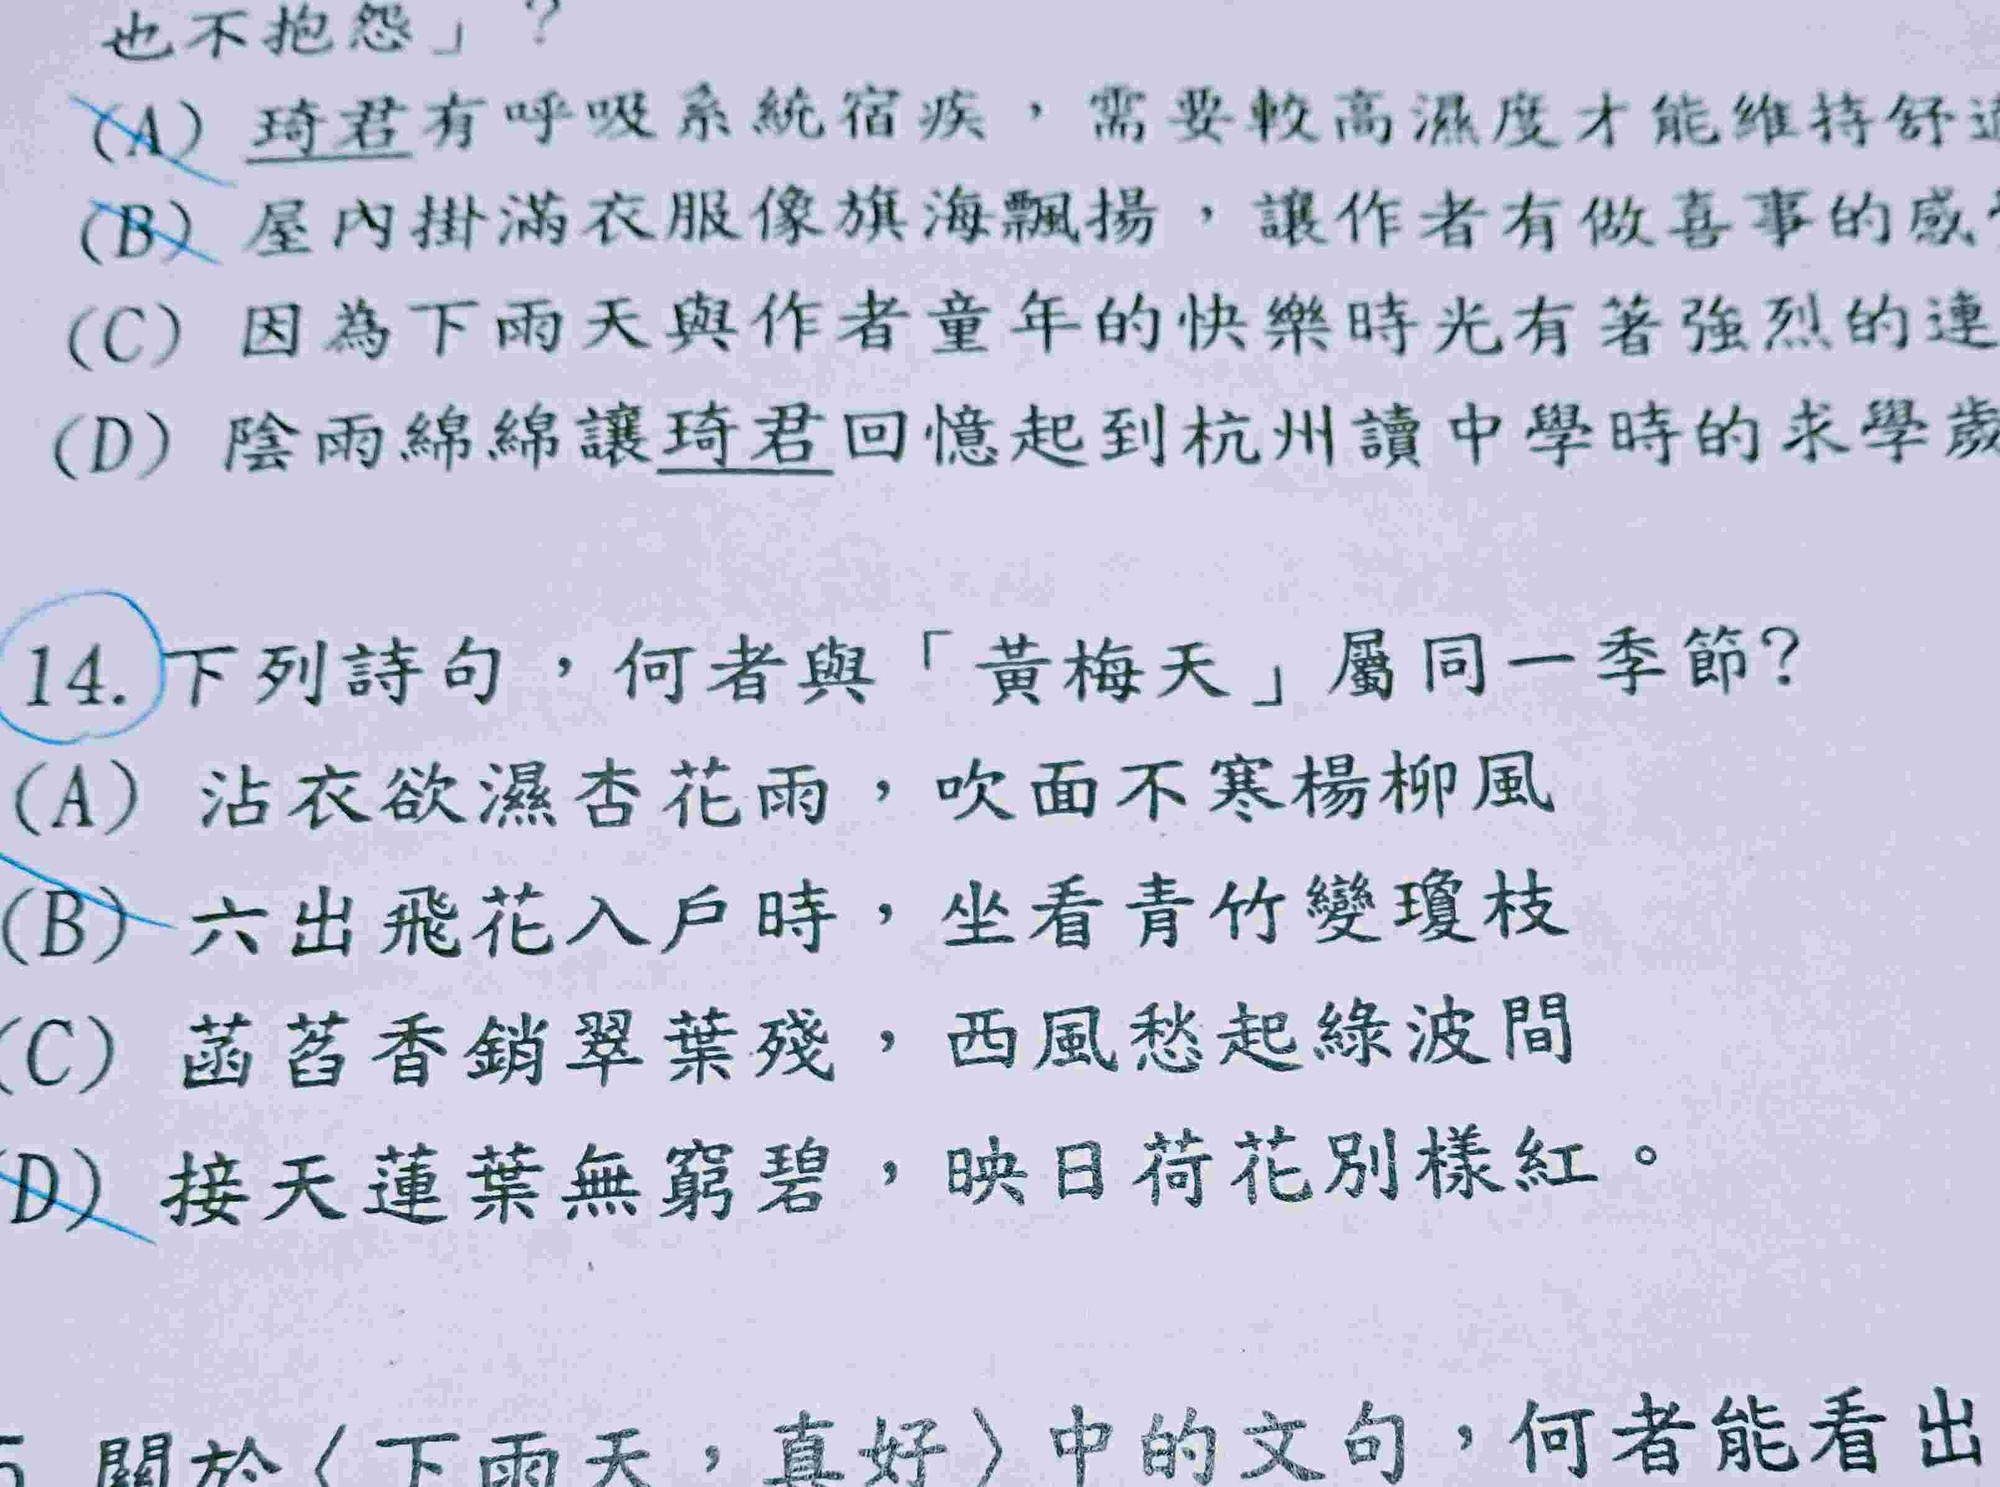 也不抱怨」？
(A) 琦君有呼吸系統宿疾，需要較高濕度才能維持舒適
(B) 屋內掛滿衣服像旗海飄揚，讓作者有做喜事的感
(C) 因為下雨天與作者童年的快樂時光有著強烈的連
(D) 陰雨綿綿讓琦君回憶起到杭州讀中學時的求學歲
14. 下列詩句，何者與「黃梅天」屬同一季節?
(A) 沾衣欲濕杏花雨，吹面不寒楊柳風
(B) 六出飛花入戶時，坐看青竹變瓊枝
(C) 菡萏香銷翠葉殘，西風愁起綠波間
(D) 接天蓮葉無窮碧，映日荷花別樣紅。
關於〈下雨天，真好〉中的文句，何者能看出